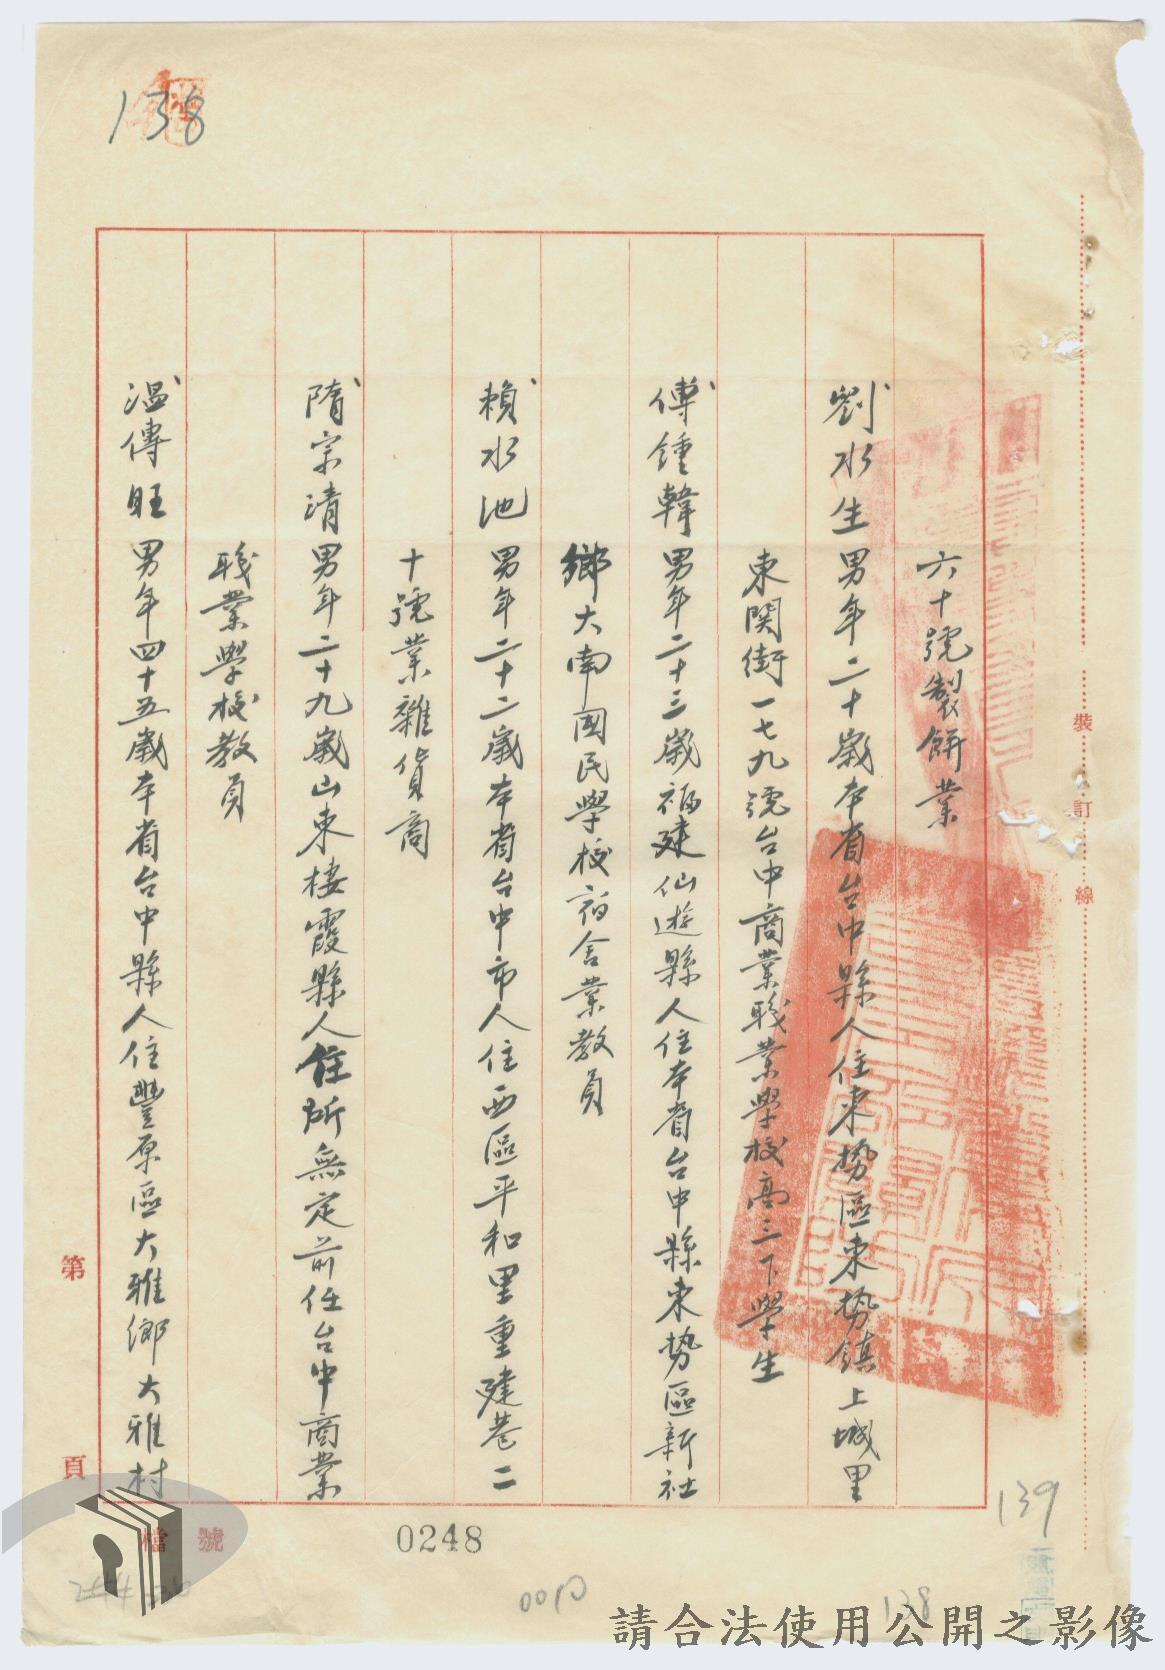 138
六十號製餅業
劉水生男年二十歲本省台中縣人住東勢區東勢鎮上城里
東関街一七九號台中商業職業學校高三下學生
傅鍾韓男年二十三歲福建仙遊縣人住本省台中縣東勢區新社
鄉大南國民學校宿舍業教員
賴水池男年二十二歲本省台中市人住西區平和里重建巷二
十號業雜貨商
隋宗清男年二十九歲山東棲霞縣人住所無定前任台中商業
職業學校教員
溫傳旺男年四十五歲本省台中縣人住豐原區大雅鄉大雅村
裝訂線
第 頁
檔號
0248
139
138
請合法使用公開之影像